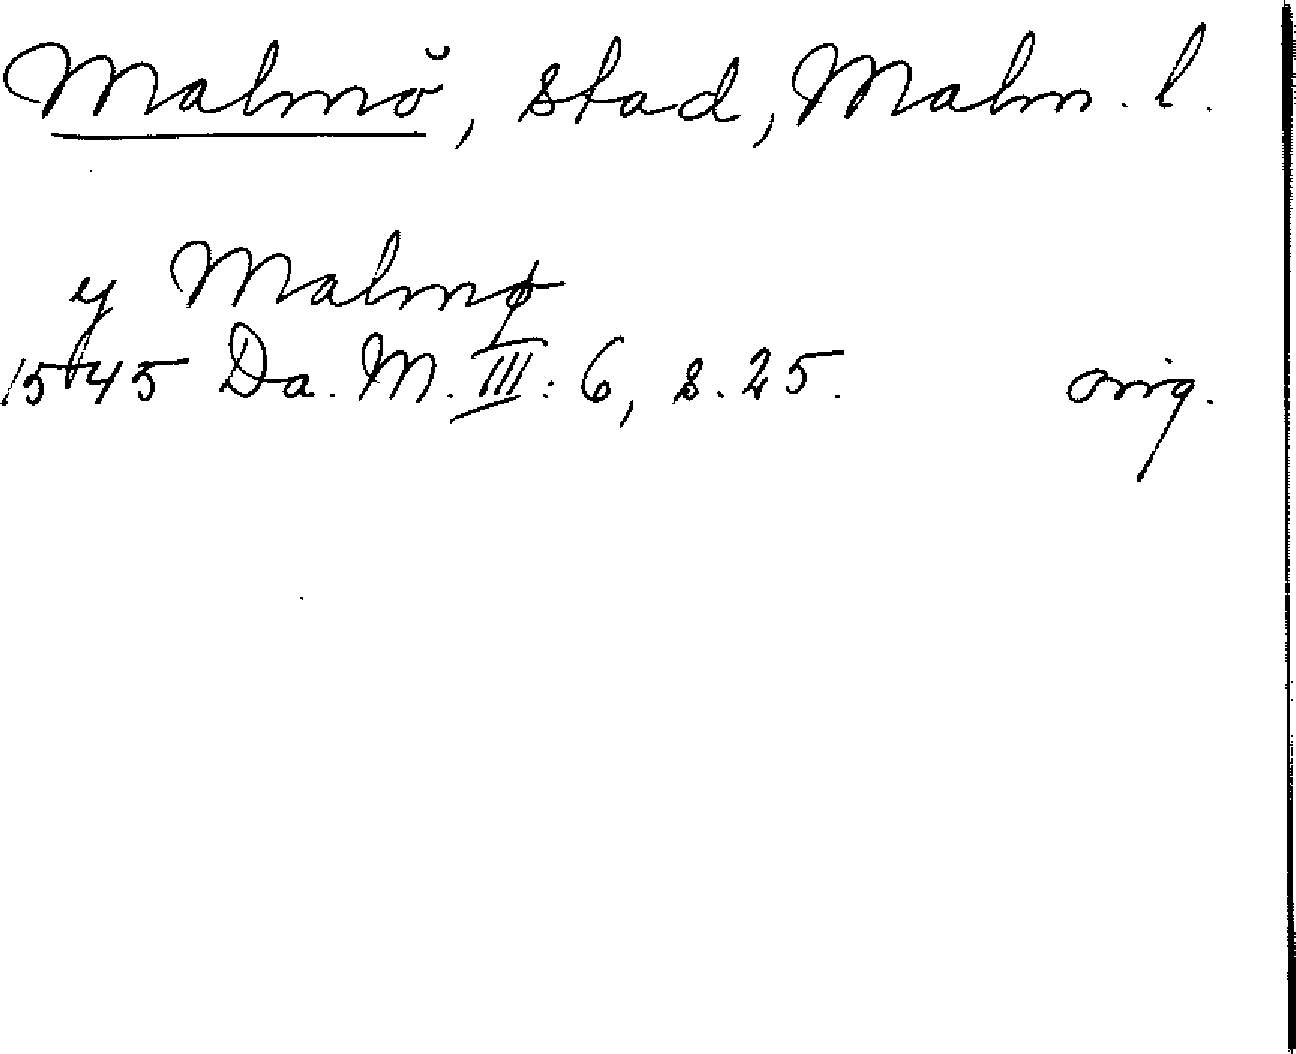 Malmö, stad, Malm. l.
y Malmø
1545 Da. M. III: 6, s. 25. orig.